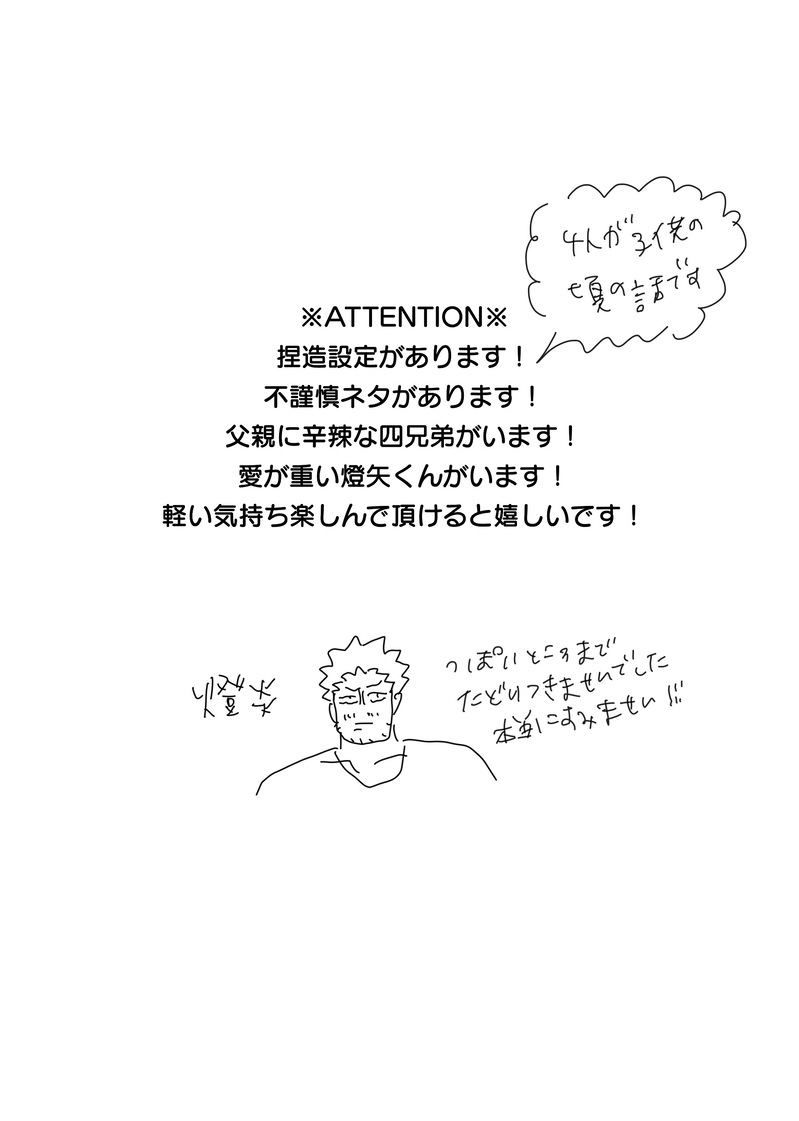 4人が子供の
頃の話です
※ATTENTION※
捏造設定があります！
不謹慎ネタがあります！
父親に辛辣な四兄弟がいます！
愛が重い燈矢くんがいます！
軽い気持ち楽しんで頂けると嬉しいです！
燈矢
っぽいところまで
たどりつきませんでした
本当にすみません!!!